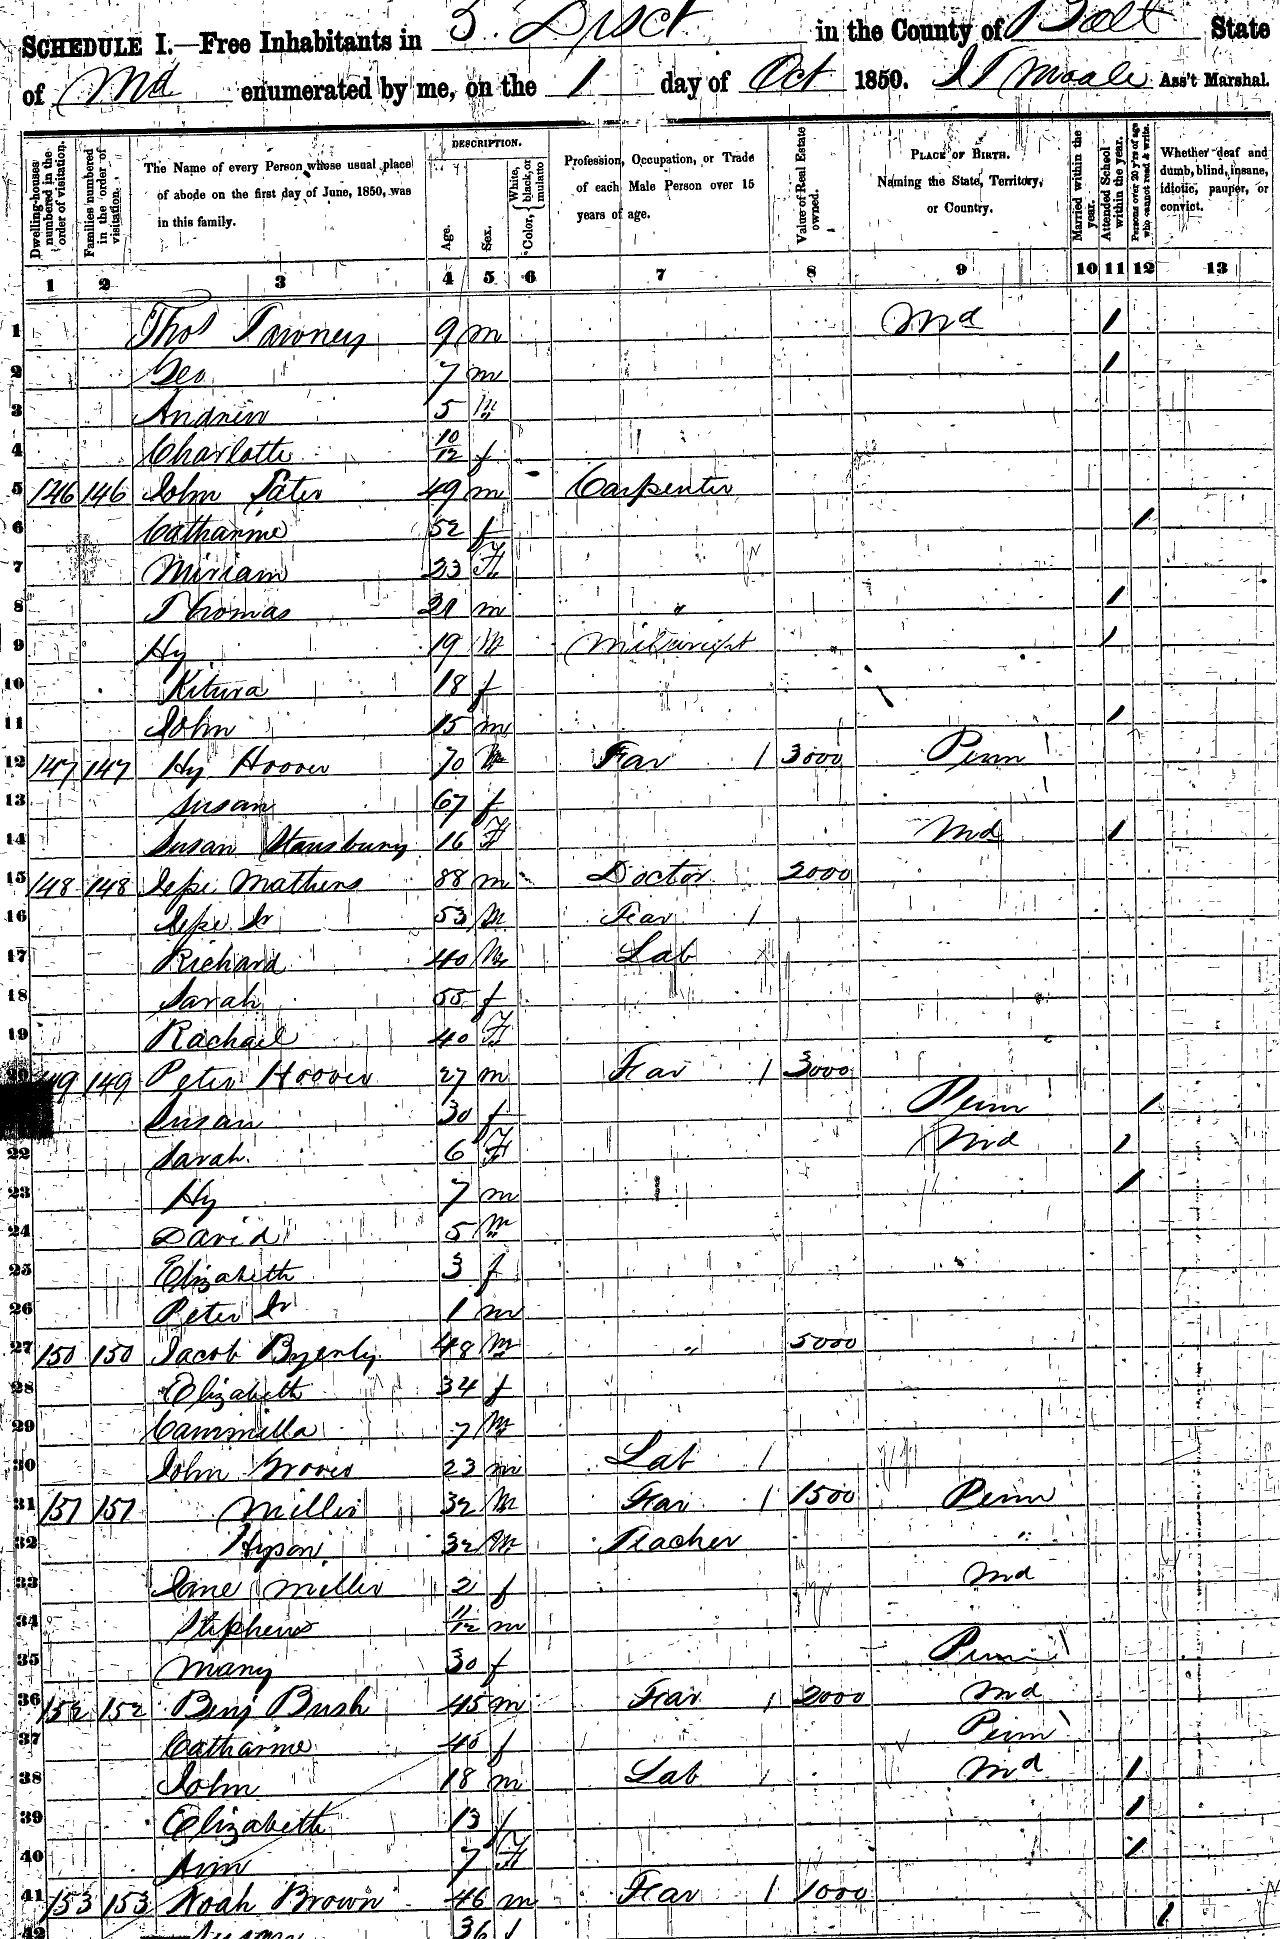 SCHEDULE I.—Free Inhabitants in 3. Disct in the County of Balt State
of Md enumerated by me, on the 1 day of Oct 1850. Ass't Marshal.
DESCRIPTION.
Dwelling-houses numbered in the order of visitation.
Families numbered in the order of visitation.
The Name of every Person whose usual place of abode on the first day of June, 1850, was in this family.
Age.
Sex.
Color, { White, black, or mulatto
Profession, Occupation, or Trade of each Male Person over 15 years of age.
Value of Real Estate owned.
PLACE OF BIRTH. Naming the State, Territory, or Country.
Married within the year.
Attended School within the year.
Persons over 20 y'rs of age who cannot read & write.
Whether deaf and dumb, blind, insane, idiotic, pauper, or convict.
1 2 3 4 5 6 7 8 9 10 11 12 13
1 Thos Tawney 9 m Md 1
2 Geo 7 m 1
3 Andrew 5 m
4 Charlotte 10/12 f
5 146 146 John 49 m Carpenter
6 Catharine 52 f 1
7 Miriam 23 F
8 Thomas 21 m " 1
9 Hy 19 M Millwright 1
10 Kitura 18 f
11 John 15 m 1
12 147 147 Hy Hoover 70 M Far 1 3000 Penn
13 Susan 67 f
14 Susan Stansbury 16 F Md 1
15 148 148 Jesse Mathews 88 m Doctor 2000
16 Jesse Jr 53 M Far 1
17 Richard 40 M Lab
18 Sarah 55 f
19 Rachael 40 F
149 149 Peter Hoover 27 m Far 1 3000
Susan 30 f Penn 1
22 Sarah 6 F Md 1
23 Hy 7 m 1
24 David 5 M
25 Elizabeth 3 f
26 Peter Jr 1 m
27 150 150 Jacob Byerly 48 M " 5000
28 Elizabeth 34 f
29 Cammilla 7 M
30 John Grover 23 m Lab 1
31 151 151 Miller 32 M Far 1 1500 Penn
32 Hyson 32 M Teacher "
33 Jane Miller 2 f Md
34 Stephens 11/12 m
35 Mary 30 f Penn
36 152 152 Benj Bush 45 m Far 1 2000 Md
37 Catharine 40 f Penn
38 John 18 m Lab 1 Md 1
39 Elizabeth 13 f 1
40 Ann 7 F 1
41 153 153 Noah Brown 46 m Far 1 1000
42 36 f 1